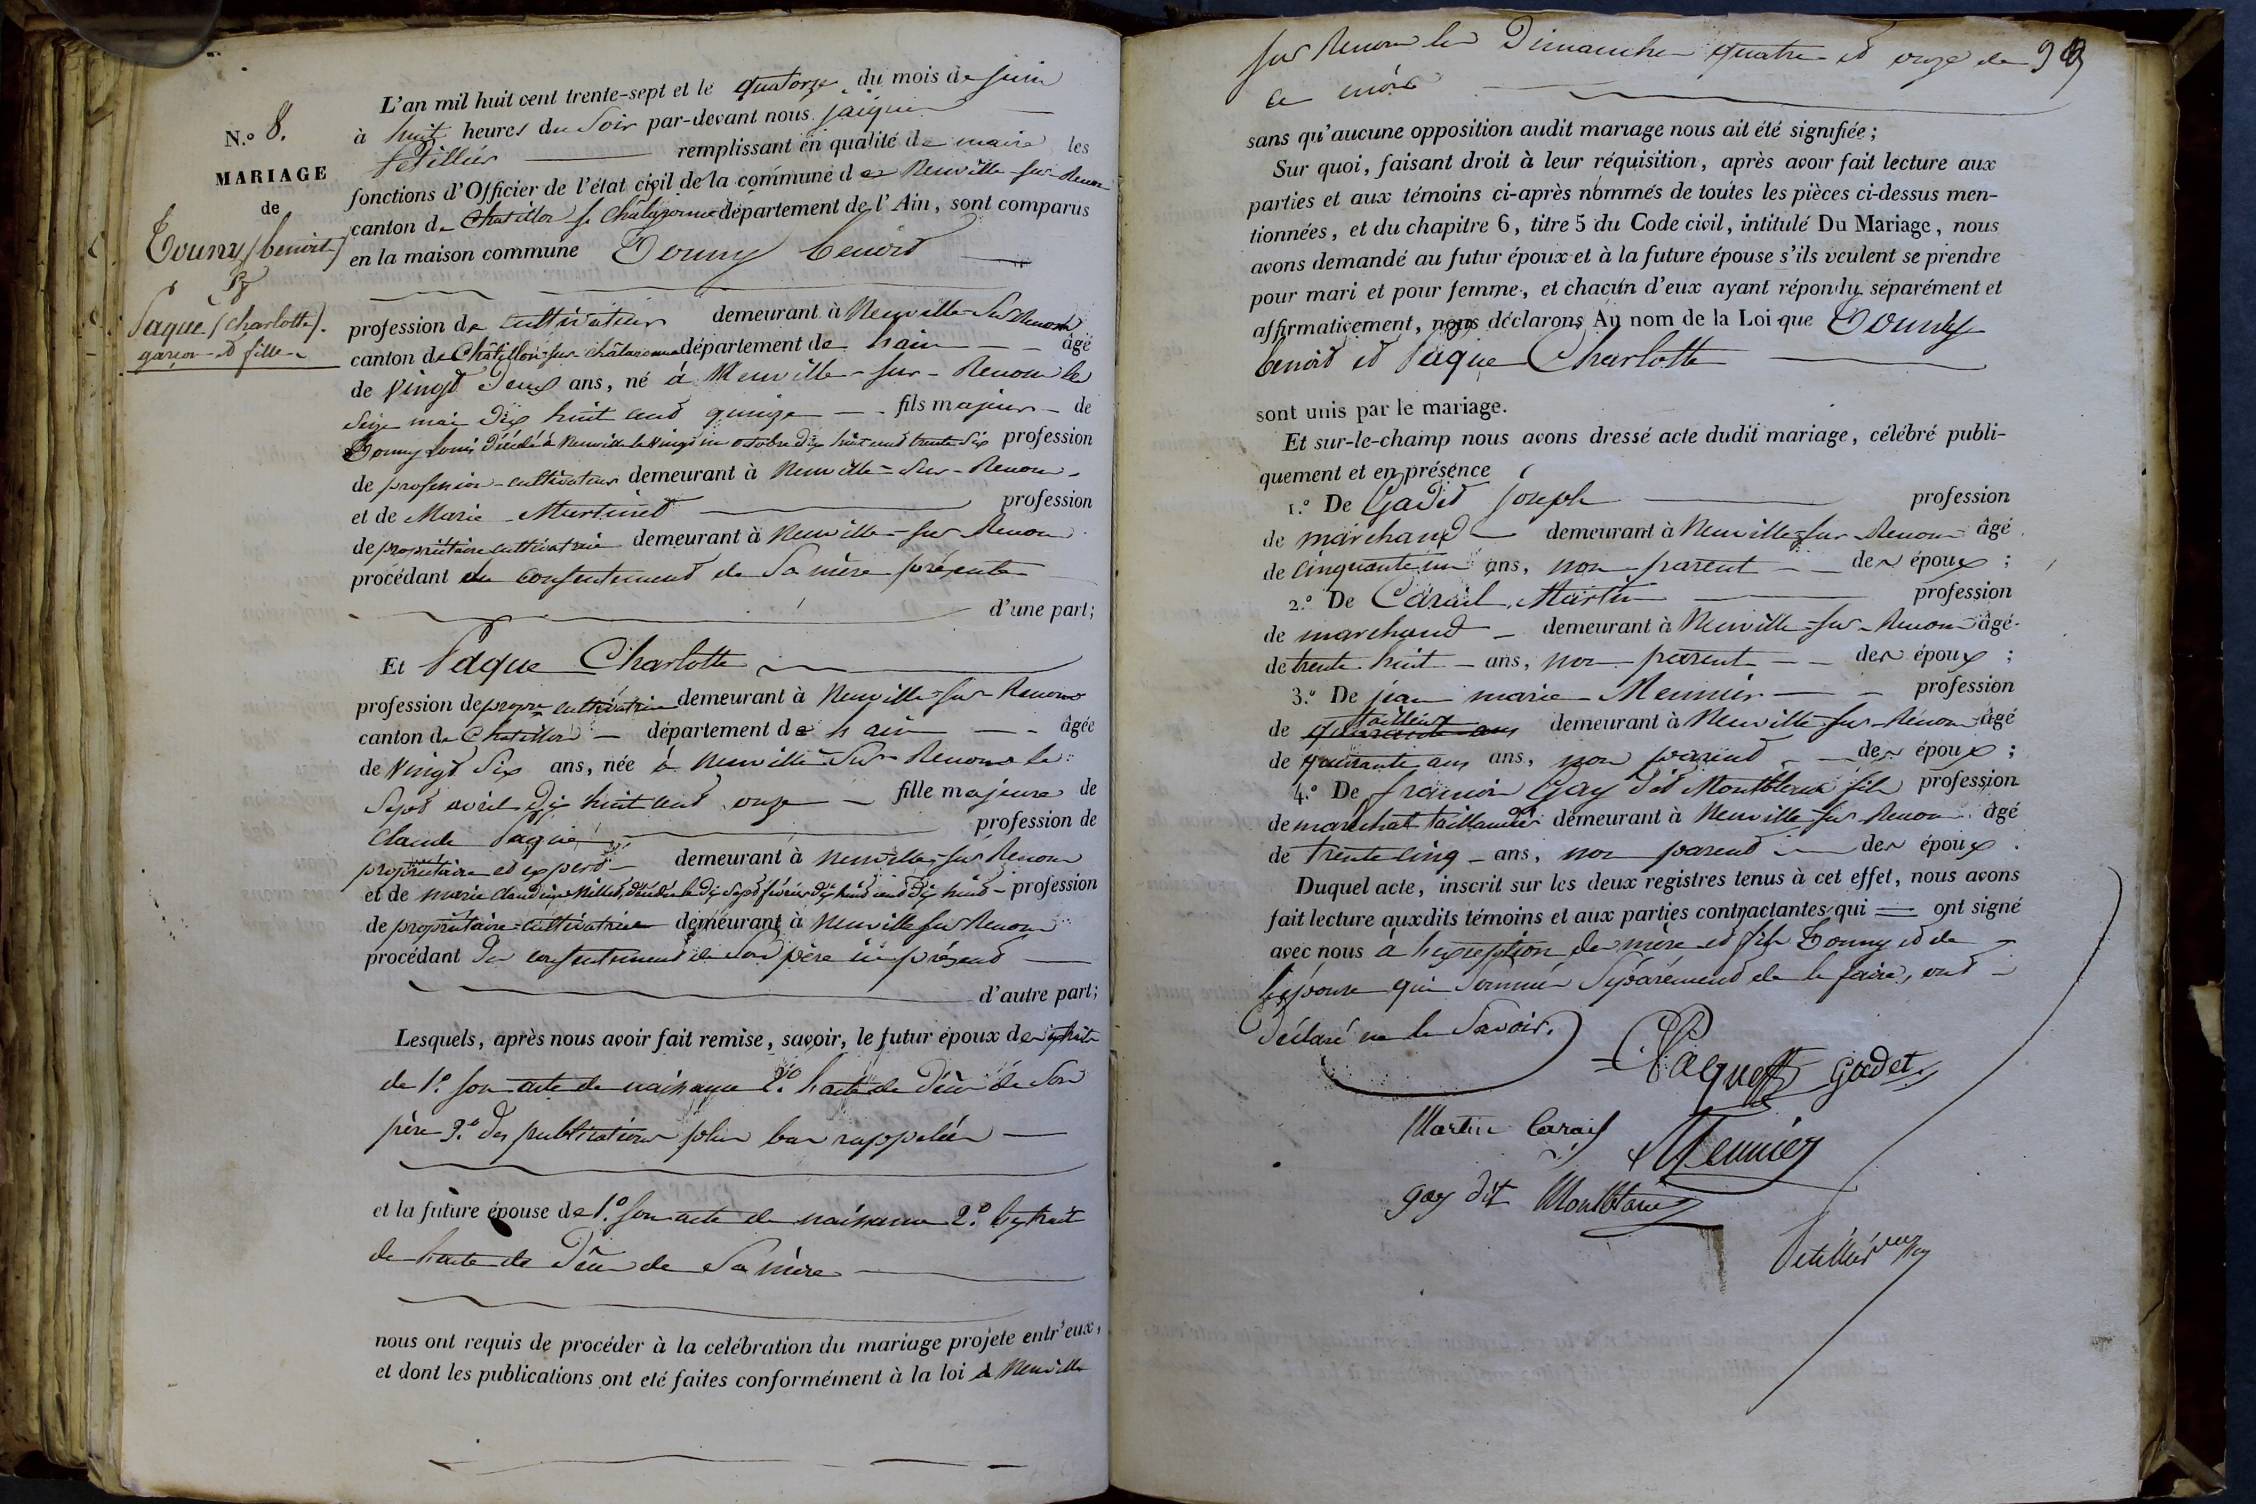 N.º 8.
MARIAGE
de
Touny (benoit)
&
Paque (Charlotte).
garçon et fille
L'an mil huit cent trente-sept et le quatorze du mois de juin
à huit heures du Soir par-devant nous
remplissant en qualité de maire les
fonctions d'Officier de l'état civil de la commune de Neuville-sur-Renom
canton de Chatillon s. Chalaronne département de l'Ain, sont comparus
en la maison commune Touny benoit
profession de cultivateur demeurant à Neuville-Sur-Renom
canton de Châtillon-sur-châlaronne département de hain âgé
de vingt Deux ans, né à Neuville-sur-Renom le
Seize mai Dix huit cent quinze fils majeur de
Touny Louis Décédé à Neuville le vingt un octobre dix huit cent trente Six profession
de profession cultivateur demeurant à Neuville-Sur-Renom
et de Marie Martinet profession
de propriétaire cultivatrice demeurant à Neuville-sur-Renom
procédant du consentement de Sa mère présente
d'une part;
Et Paque Charlotte
profession de propre cultivatrice demeurant à Neuville-sur-Renom
canton de Chatillon département de hain âgée
de vingt Six ans, née à Neuville-Sur-Renom le
Sept avril Dix huit cent onze fille majeure de
Claude Paque profession de
propriétaire et expert demeurant à Neuville-sur-Renom
et de marie claudine Millet, décédée le dix Sept février dix huit cent dix huit profession
de propriétaire-cultivatrice demeurant à Neuville sur Renom
procédant Du consentement de Son père ici présent
d'autre part;
Lesquels, après nous avoir fait remise, savoir, le futur époux de extrait
de 1.º son acte de naissance 2.º hacte de Décè de Son
père 3.º des publications plus bas rappelées
et la future épouse de 1.º son acte de naissance 2.º lextrait
de hacte de Décè de Sa mère
nous ont requis de procéder à la celébration du mariage projeté entr'eux,
et dont les publications ont eté faites conformément à la loi à Neuville
sur Renom les Dimanches quatre et onze de
ce mois
sans qu'aucune opposition audit mariage nous ait été signifiée;
Sur quoi, faisant droit à leur réquisition, après avoir fait lecture aux
parties et aux témoins ci-après nommés de toutes les pièces ci-dessus men-
tionnées, et du chapitre 6, titre 5 du Code civil, intitulé Du Mariage, nous
avons demandé au futur époux et à la future épouse s'ils veulent se prendre
pour mari et pour femme, et chacun d'eux ayant répondu séparément et
affirmativement, nous déclarons Au nom de la Loi que Touny
benoit et Paque Charlotte
sont unis par le mariage.
Et sur-le-champ nous avons dressé acte dudit mariage, célébré publi-
quement et en présence
1.º De Gadet joseph profession
de marchand demeurant à Neuville-sur-Renom âgé
de cinquante un ans, non parent des époux;
2.º De Carail Martin profession
de marchand demeurant à Neuville-sur-Renom âgé
de trente huit ans, non parent des époux;
3.º De jean marie Meunier profession
de tailleur demeurant à Neuville-sur-Renom âgé
de quarante ans ans, non parent des époux;
4.º De francois Gay dit Montblanc fils profession
de maréchal taillandier demeurant à Neuville-sur-Renom âgé
de trente cinq ans, non parent des époux.
Duquel acte, inscrit sur les deux registres tenus à cet effet, nous avons
fait lecture auxdits témoins et aux parties contractantes qui ont signé
avec nous à hexception des mère et fils Touny et de
lépouse qui Sommés Séparément de le faire, ont
Déclaré ne le Savoir.
Pacquet Gadet
Martin Carail Meunier
gay dit Montblanc